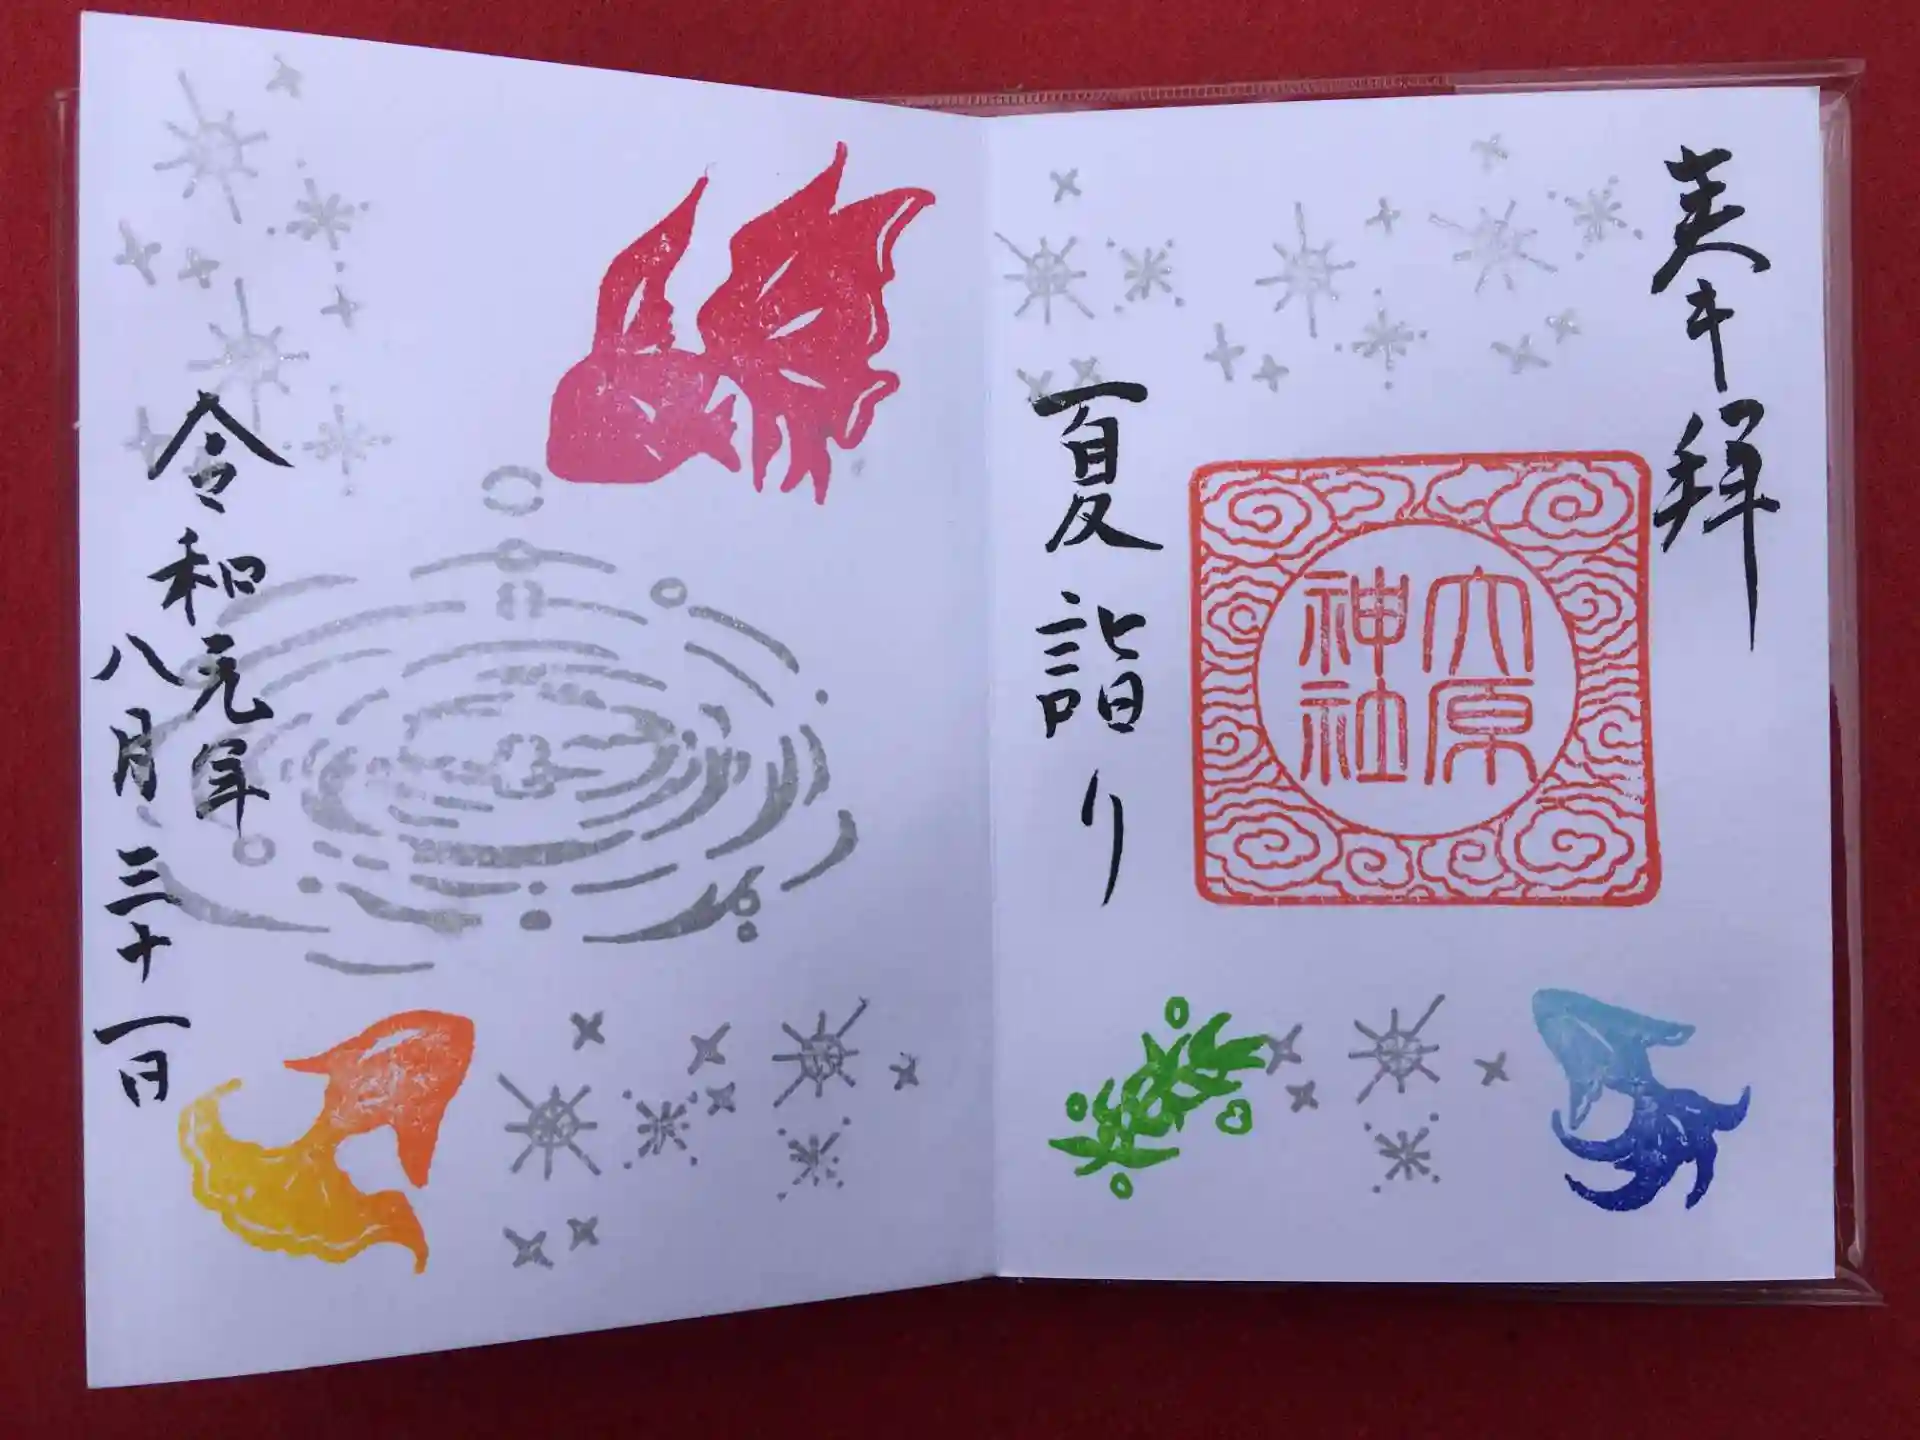 奉拝
大原
神社
夏詣り
令和元年
八月三十一日